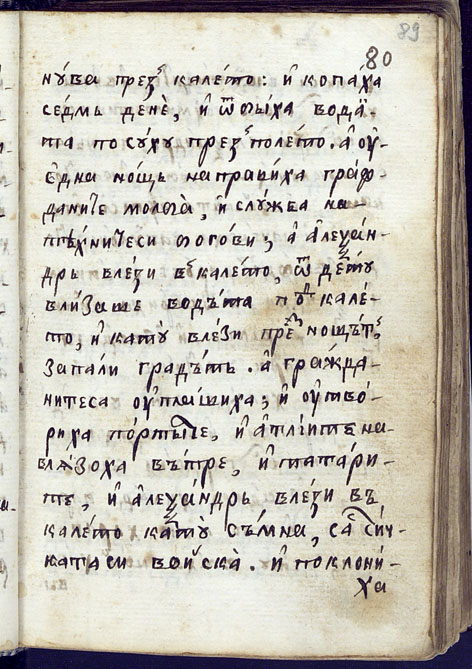 89
80
нꙋ́ва през̾ кале́то: и҆ копа́ха
се́дмь денѐ, и҆ ѿби́ха вода́-
та по сꙋ́хꙋ през̾ поле́то. а҆ оу҆
є҆дна но́щь напра́виха граж-
да́ните молба̀, и҆ слꙋ́жба на-
пѣ́хнитеси богови; а҆ а҆леѯа́н-
дрь влѣ́зи в̾ кале́то, ѿ де́тꙋ
влѝзаше вода́та под кале́-
то, и҆ като̀ влѣ́зи през̾ нощьт̾,
запали гра́дъть. а҆ гра́жда-
нитеса оу҆пла́шиха; и҆ оу҆тво́-
риха по́ртыте, и҆ а҆тлїи́тена-
влѧ́зоха въ́тре, и҆ тата́ри-
те, и҆ а҆леѯа́ндрь влѣ́зи въ
кале́то като̀ съ́мна, са сѝч-
катаси во́йска. и҆ поклони́-
ха